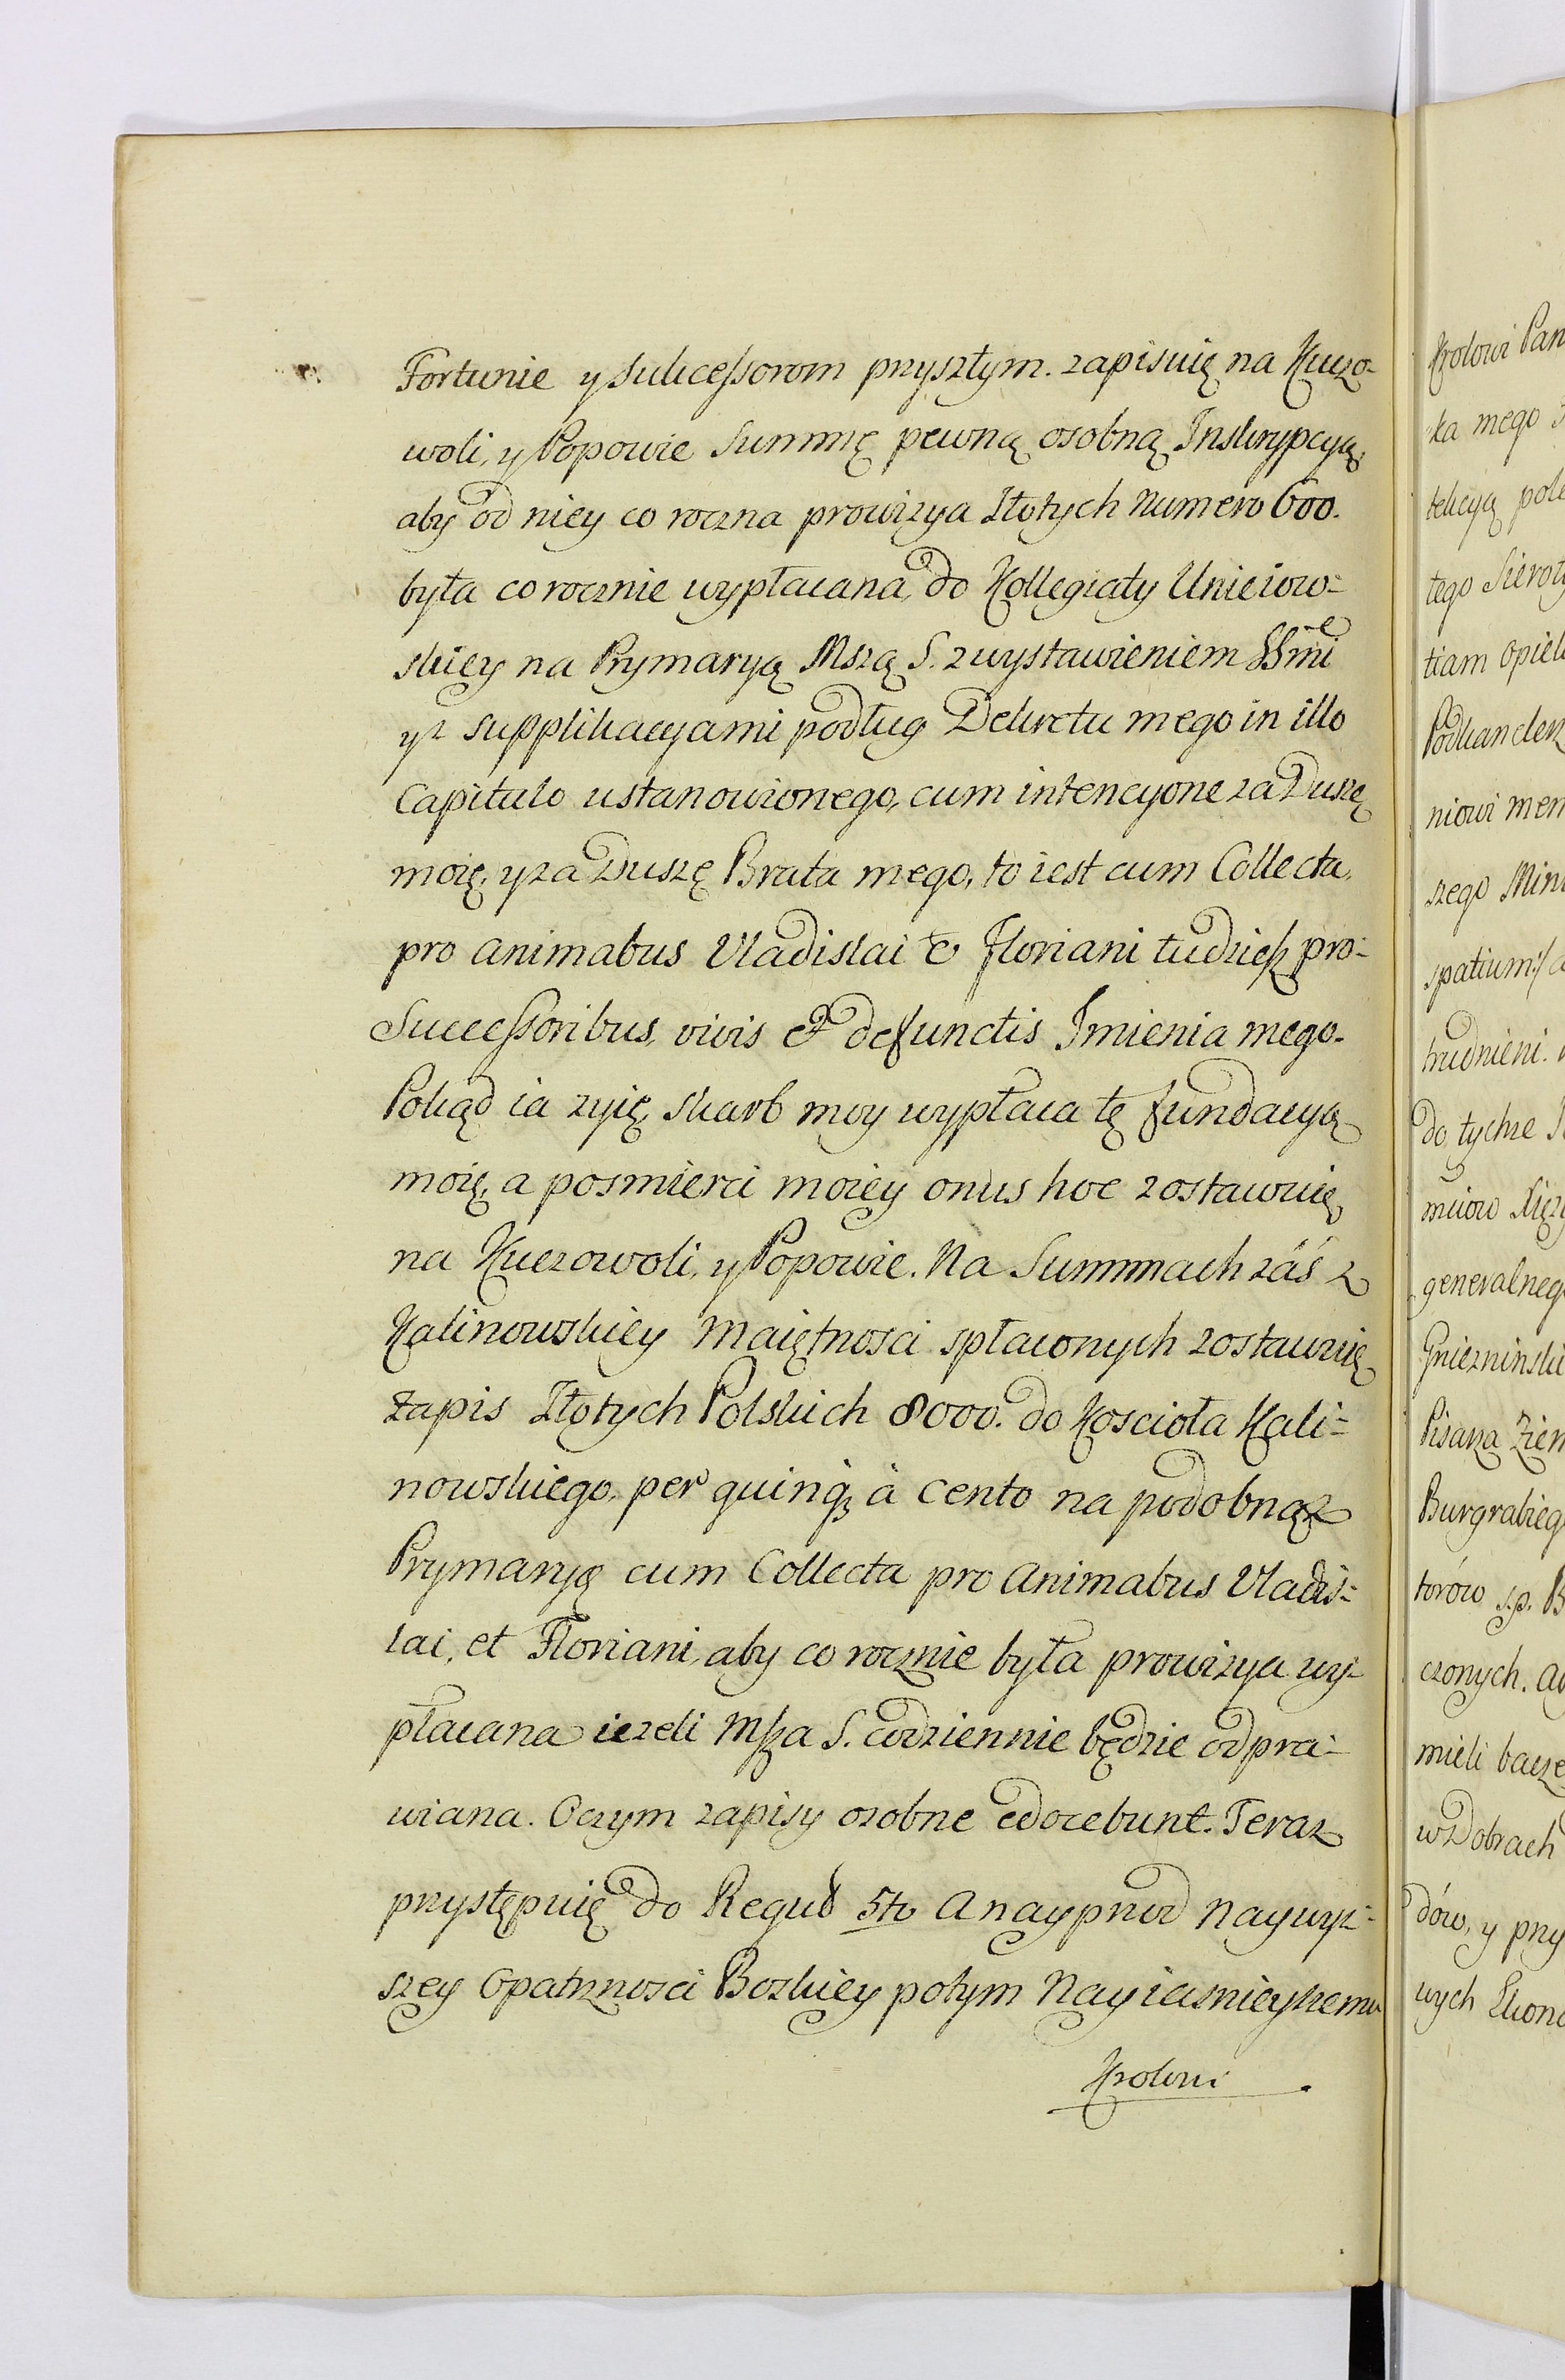 Fortunie y Sukcessorom przyszłym. zapisuię na Kuczo-
woli, y Popowie Summę pewną osobną Inskrypcyą,
aby od niey co roczna prowizya Złotych Numero 600.
była corocznie wypłacana, do Kollegiaty Unieiow-
skiey na Prymaryą Mszą S. z wystawieniem SSmi
y z supplikacyami podług Dekretu mego in illo
Capitulo ustanowionego, cum intencyone za Duszę
moię, y za Duszę Brata mego, to iest cum Collecta,
pro animabus Vladislai & Floriani tudziesz pro-
Successoribus, vivis et defunctis Imienia mego.
Pokąd ia zyię, skarb moy wypłaca tę fundacyą
moię, a posmierci moiey onus hoc zostawuię,
na Kuczowoli, y Popowie. Na Summach záś z
Kalinowskiey Maiętnosci spłaconych zostawuię
zapis Złotych Polskich 8000. do Koscioła Kali-
nowskiego, per quinq; à Cento na podobnąz
Prymaryę cum Collecta pro Animabus Vladis-
lai, et Floriani, aby co rocznie była prowizya wy-
płacana iezeli Msza S. codziennie będzie odpra-
wiana. Oczym zapisy osobne edocebunt. Teraz
przystępuię do Reguł 5to A nayprzod Naywyż-
szey Opatrznosci Boskiey potym Nayiasnieyszemu
Krolowi
Krolowi Pan
ka mego
tekcyą pole
tego Sierot
tiam opiek
Podkanclerz
niowi mem
szego Mini
spatium:/ a
trudnieni.
do tychze
mciow Xięz
generalneg
Gniezninskie
Pisarza Ziem
Burgrabieg
torów s.p. B
czonych. a
mieli bacze
w Dobrach
dów, y przy
wych Ekono